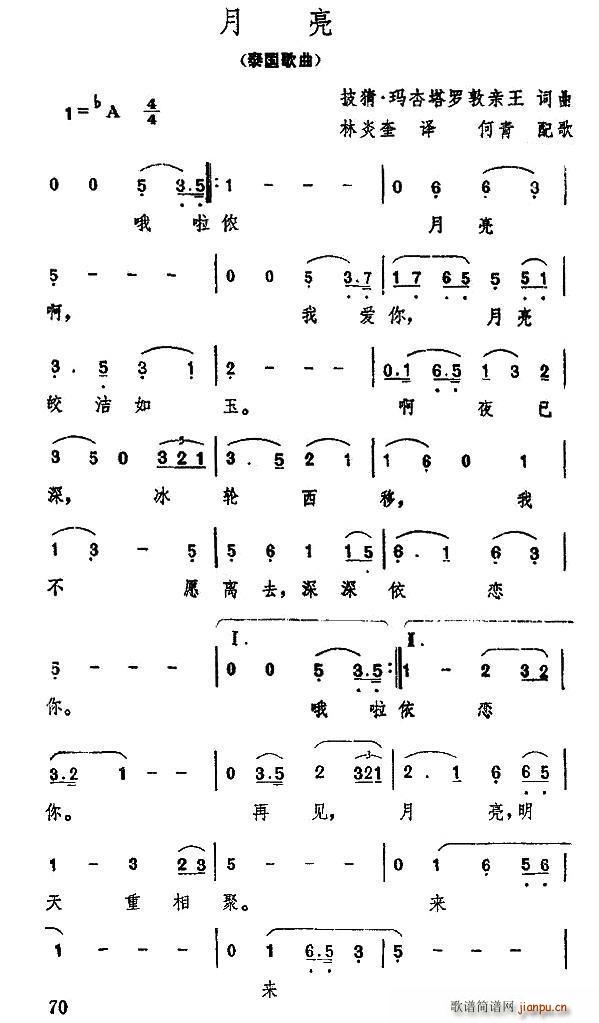 月 亮
(泰国歌曲)
1=♭A 4/4
披猜·玛杏塔罗敦亲王 词曲
林炎奎 译 何青 配歌
0 0 5 3.5 :1 - - - | 0 6 6 3 |
哦 啦 侬 月 亮
5 - - - | 0 0 5 3.7 | 1 7 6 5 5 5 1 |
啊, 我 爱 你, 月 亮
3. 5 3 1 | 2 - - - | 0.1 6.5 1 3 2 |
皎 洁 如 玉。 啊 夜 已
3 5 0 3 2 1 | 3. 5 2 1 | 1 6 0 1 |
深, 冰 轮 西 移, 我
1 3 - 5 | 5 6 1 1 5 | 6. 1 6 3 |
不 愿 离 去, 深 深 依 恋
I. II.
5 - - - | 0 0 5 3.5 :1 - 2 3 2 |
你。 哦 啦 依 恋
3.2 1 - - | 0 3.5 2 3 2 1 | 2. 1 6 6 5 |
你。 再 见, 月 亮, 明
1 - 3 2 3 | 5 - - - | 0 1 6 5 6 |
天 重 相 聚。 来
1 - - - | 0 1 6.5 3 | 5 - - - |
来
70
歌谱简谱网
jianpu.cn